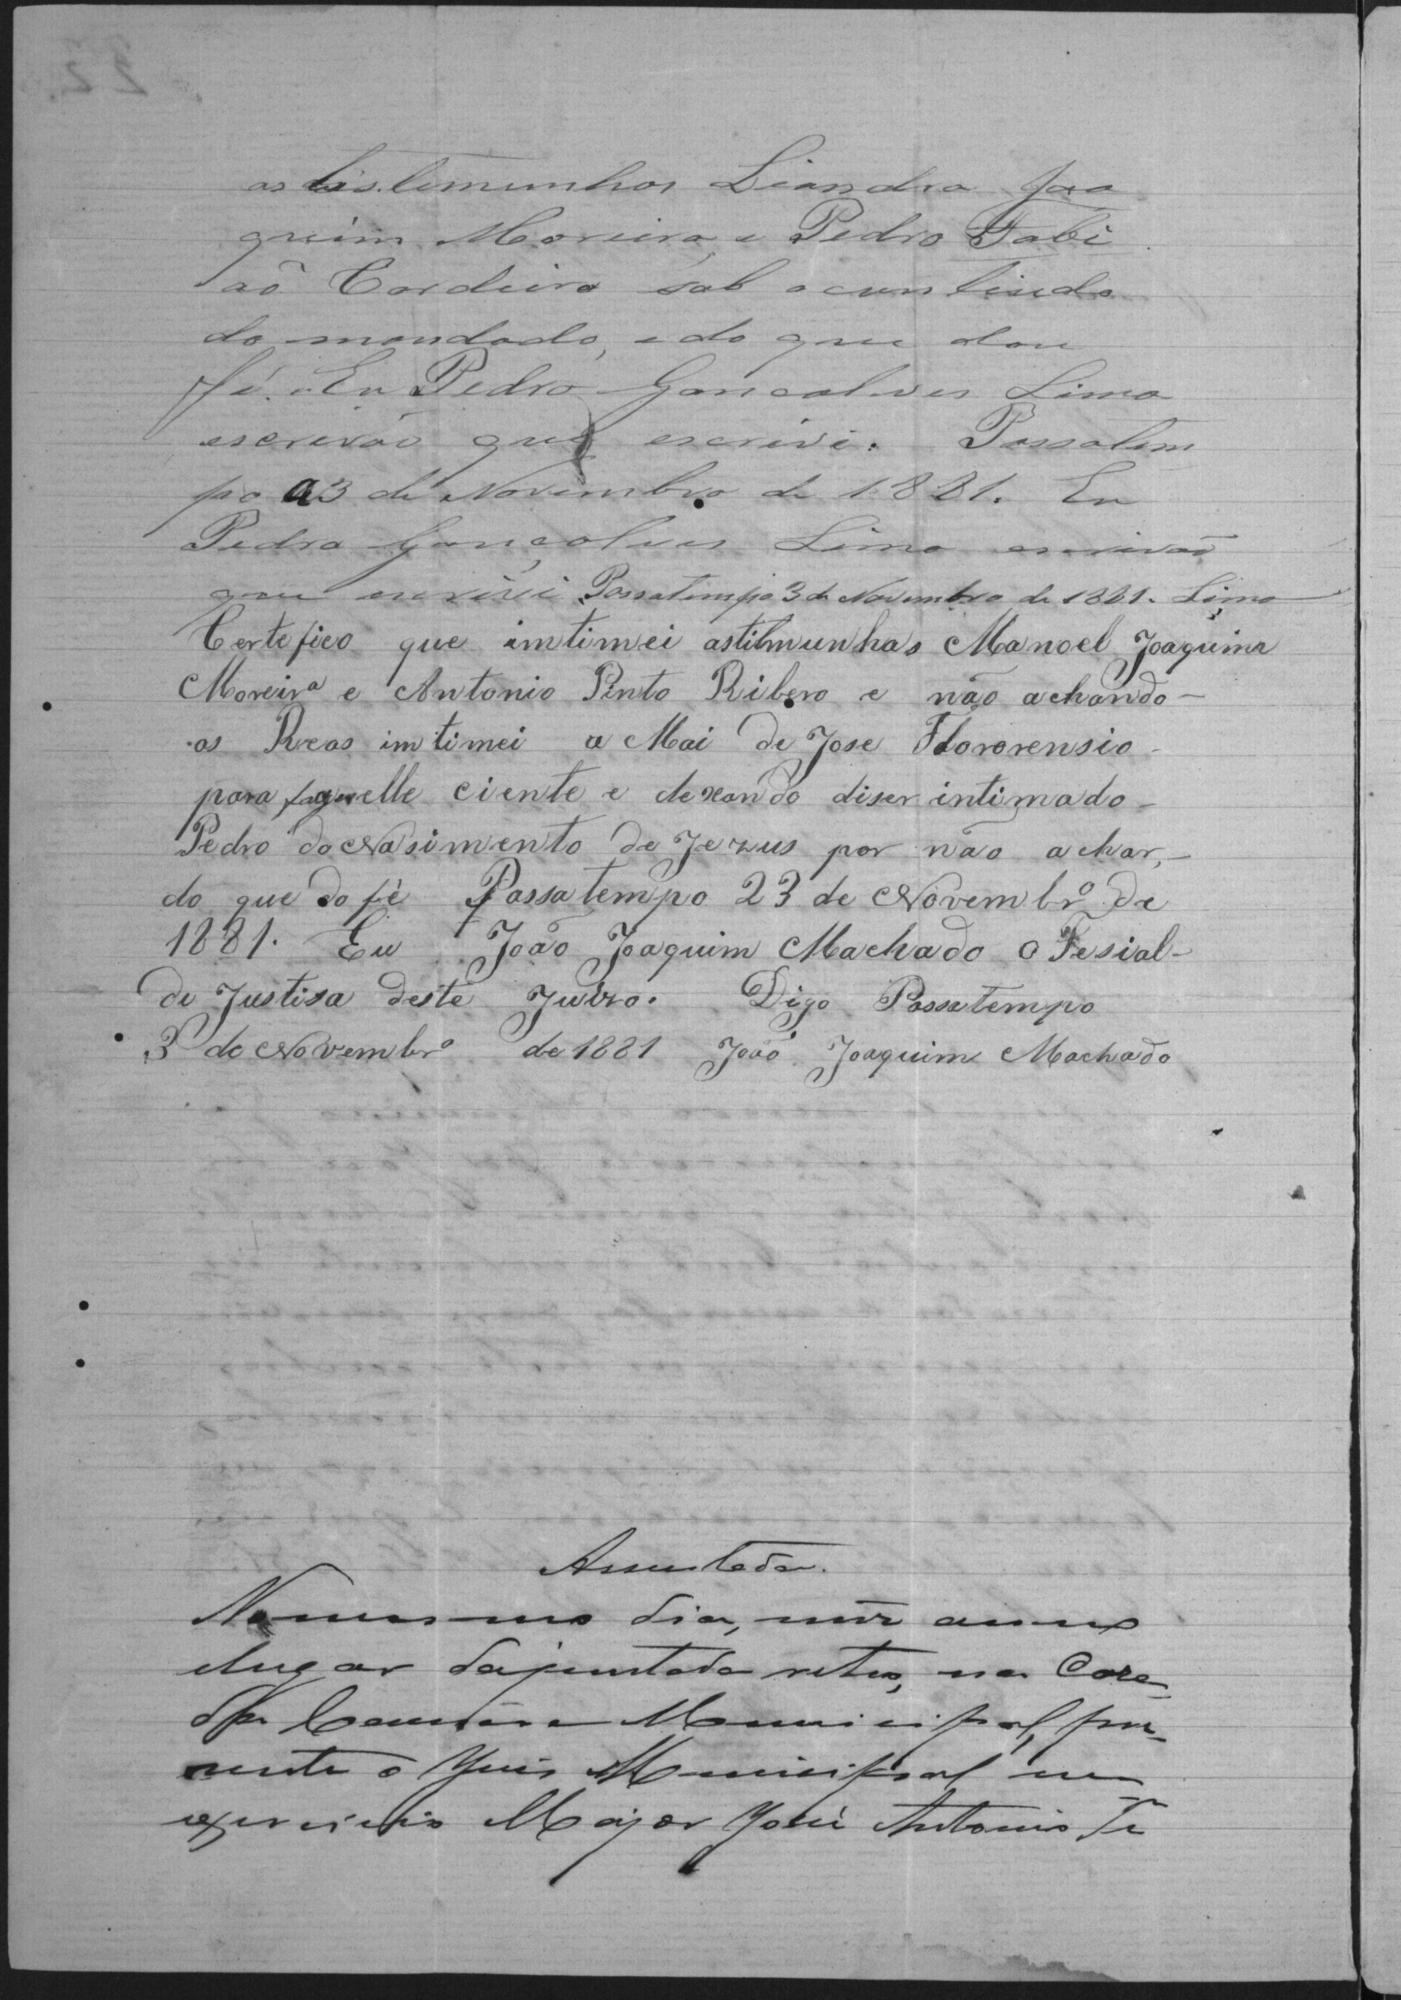 as tistemunhas Liandro Joa
quim Moreira, e Pedro Fabi
aõ Cordeiro sob o contiudo
do mandado, e do que dou
fé. Eu Pedro Goncalves Lima
escrivaõ que escrivi. Passatem
po a 3 de Novembro de 1881. Eu
Pedro Gonçalves Lima escrivaõ
que escrivi Passatempo 3 de Novembro de 1881. Lima
Certefico que imtimei astilmunhas Manoel Joaquima
Moreirª e Antonio Pinto Ribero e não achando-
os Reos imtimei a Mai de Jose Flororensio-
para faquelle ciente e dexando diser intimado-
Pedro do Nasimento de Jezus por não achar,-
do que do fé Passatempo 23 de Novembrº de
1881. Eu João Joaquim Machado O Fesial-
de Justisa deste Juizo. Digo Passatempo
3 de Novembrº de 1881 João Joaquim Machado
Assentada.
No mesmo dia, mez anno
elugar dajuntada retro, na Caza
da Camara Municipal, pre-
zente o Juis Municipal em
exercicio Major José Antonio Te